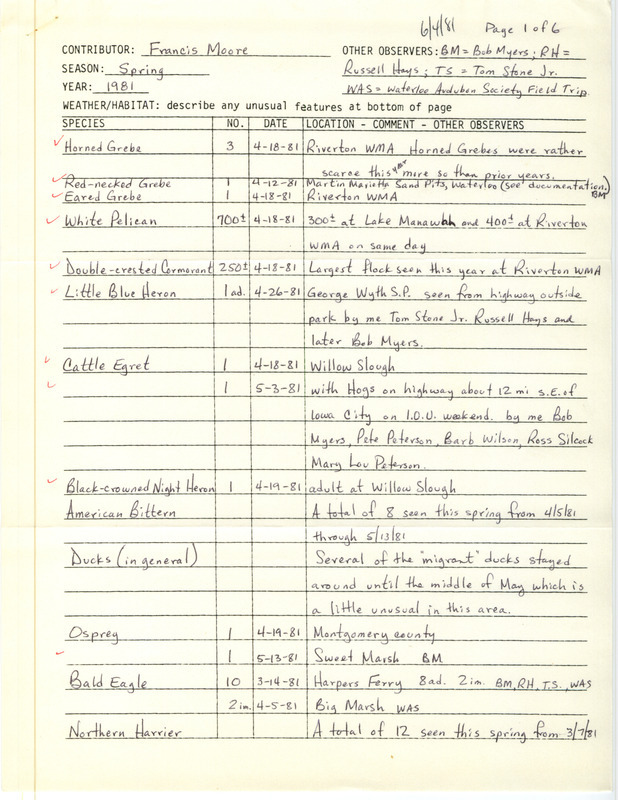 6/4/81 Page 1 of 6
CONTRIBUTOR: Francis Moore OTHER OBSERVERS: BM = Bob Myers; RH =
SEASON: Spring Russell Hays; TS = Tom Stone Jr.
YEAR: 1981 WAS = Waterloo Audubon Society Field Trip.
WEATHER/HABITAT: describe any unusual features at bottom of page
SPECIES NO. DATE LOCATION - COMMENT - OTHER OBSERVERS
Horned Grebe 3 4-18-81 Riverton WMA Horned Grebes were rather
scarce this year more so than prior years.
Red-necked Grebe 1 4-12-81 Martin Marietta Sand Pits, Waterloo (see documentation) BM
Eared Grebe 1 4-18-81 Riverton WMA
White Pelican 700± 4-18-81 300± at Lake Manawah and 400± at Riverton
WMA on same day
Double-crested Cormorant 250± 4-18-81 Largest flock seen this year at Riverton WMA
Little Blue Heron 1ad. 4-26-81 George Wyth S.P. seen from highway outside
park by me Tom Stone Jr. Russell Hays and
later Bob Myers.
Cattle Egret 1 4-18-81 Willow Slough
1 5-3-81 with Hogs on highway about 12 mi S.E. of
Iowa City on I.O.U. weekend. by me Bob
Myers, Pete Peterson, Barb Wilson, Ross Silcock
Mary Lou Peterson.
Black-crowned Night Heron 1 4-19-81 adult at Willow Slough
American Bittern A total of 8 seen this spring from 4/5/81
through 5/13/81
Ducks (in general) Several of the "migrant" ducks stayed
around until the middle of May which is
a little unusual in this area.
Osprey 1 4-19-81 Montgomery county
1 5-13-81 Sweet Marsh BM
Bald Eagle 10 3-14-81 Harpers Ferry 8ad. 2im. BM, RH, T.S., WAS
2im. 4-5-81 Big Marsh WAS
Northern Harrier A total of 12 seen this spring from 3/7/81